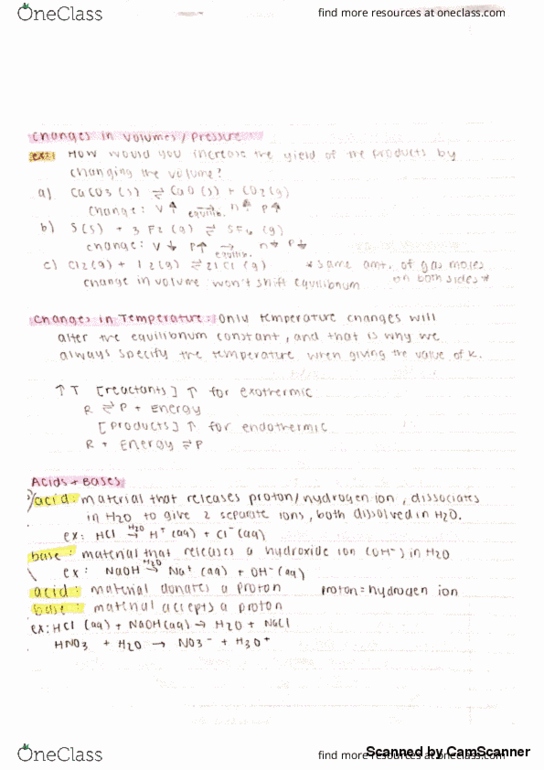 OneClass
find more resources at oneclass.com
Changes in Volumes / Pressure
ex: How would you increase the yield of the products by
changing the volume?
a) CaCO3 (s) ⇌ CaO (s) + CO2 (g)
change: V↑ → equilib. n↑ P↑
b) S(s) + 3 F2 (g) ⇌ SF6 (g)
change: V↓ P↑ → equilib. n↓ P↓
c) Cl2 (g) + I2 (g) ⇌ 2ICl (g) *same amt. of gas moles
change in volume won't shift equilibrium on both sides*
Changes in Temperature: Only temperature changes will
alter the equilibrium constant, and that is why we
always specify the temperature when giving the value of k.
↑T [reactants] ↑ for exothermic
R ⇌ P + Energy
[products] ↑ for endothermic
R + Energy ⇌ P
Acids + Bases
acid: material that releases proton/hydrogen ion, dissociates
in H2O to give 2 separate ions, both dissolved in H2O.
ex: HCl H2O→ H+ (aq) + Cl- (aq)
base: material that releases a hydroxide ion (OH-) in H2O
ex: NaOH H2O→ Na+ (aq) + OH- (aq)
acid: material donates a proton proton=hydrogen ion
base: material accepts a proton
ex: HCl (aq) + NaOH(aq) → H2O + NaCl
HNO3 + H2O → NO3- + H3O+
OneClass
find more resources at oneclass.com
Scanned by CamScanner